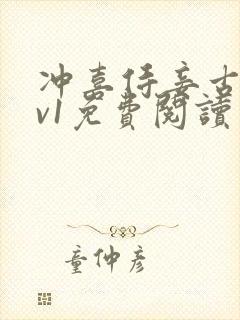 冲喜侍妾古
v1免費閱讀
童仲彦